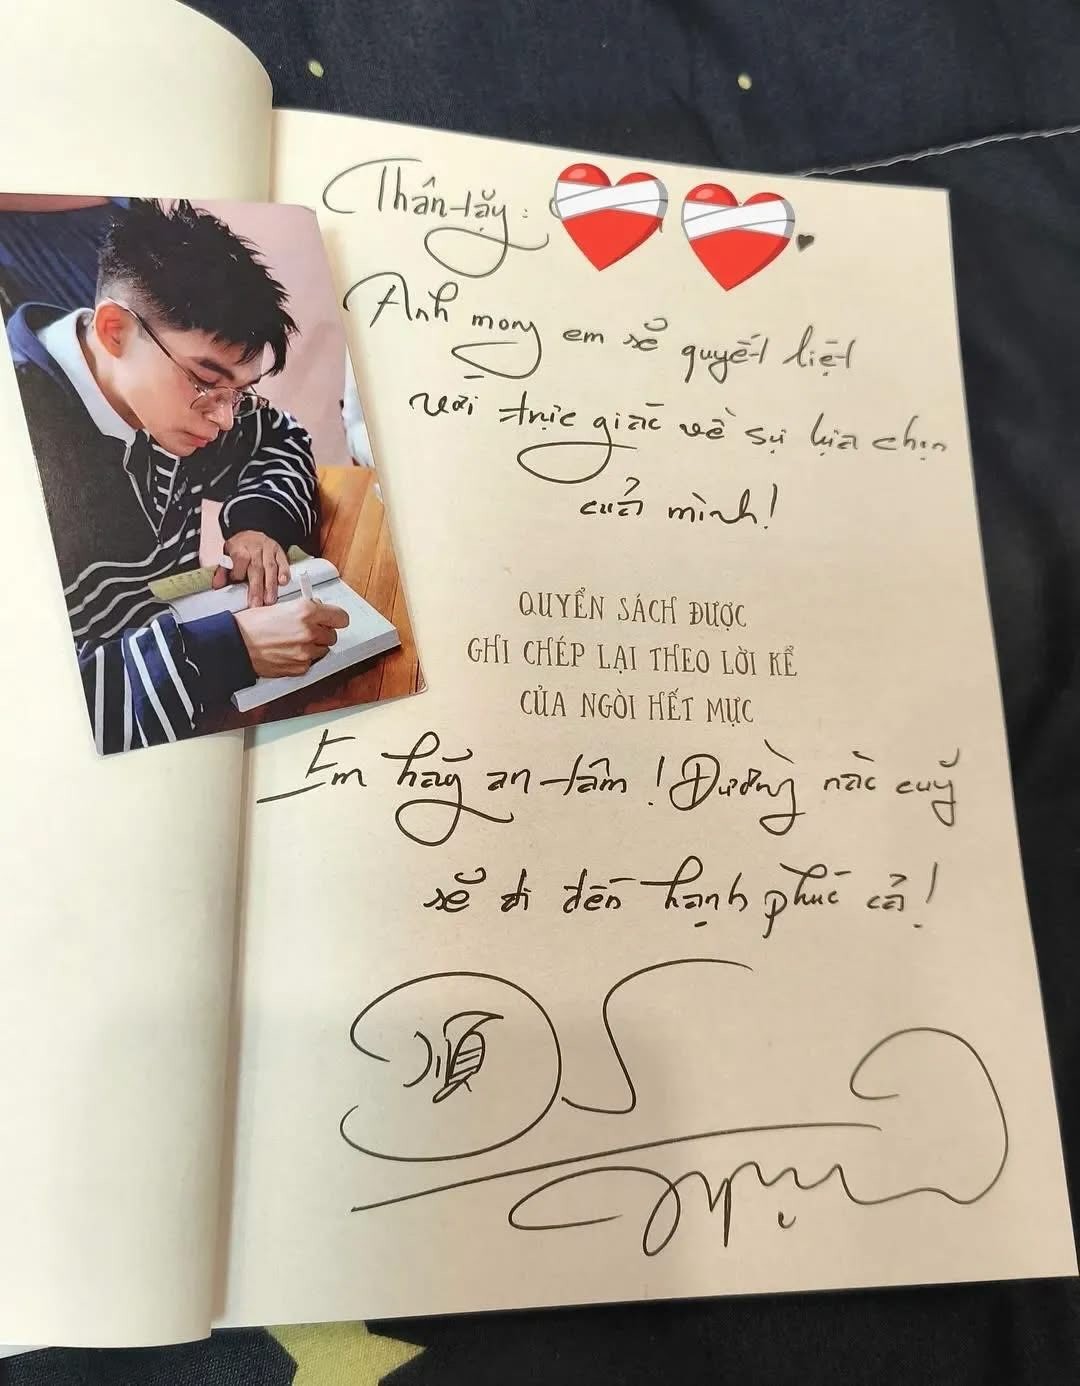 Thân tặng:
Anh mong em sẽ quyết liệt
với trực giác về sự lựa chọn
của mình!
QUYỂN SÁCH ĐƯỢC
GHI CHÉP LẠI THEO LỜI KỂ
CỦA NGÒI HẾT MỰC
Em hãy an tâm! Đường nào cũng
sẽ đi đến hạnh phúc cả!
順